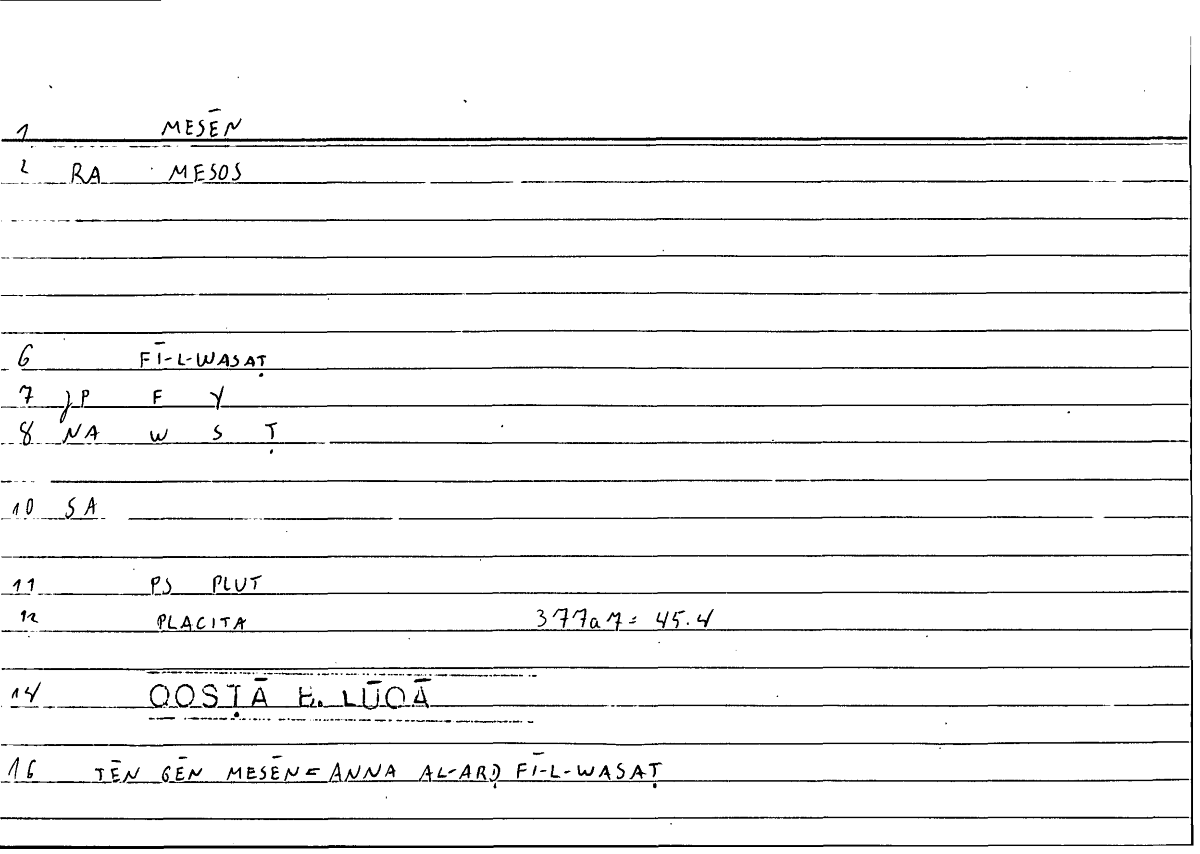 1 MESĒN
2 RA MESOS
6 FĪ-L-WASAṬ
7 JP F Y
8 NA W S Ṭ
10 SA
11 PS PLUT
12 PLACITA 377a7= 45.4
14 QOSṬĀ B. LŪQĀ
16 TĒN GĒN MESĒN= ANNA AL-ARḌ FĪ-L-WASAṬ